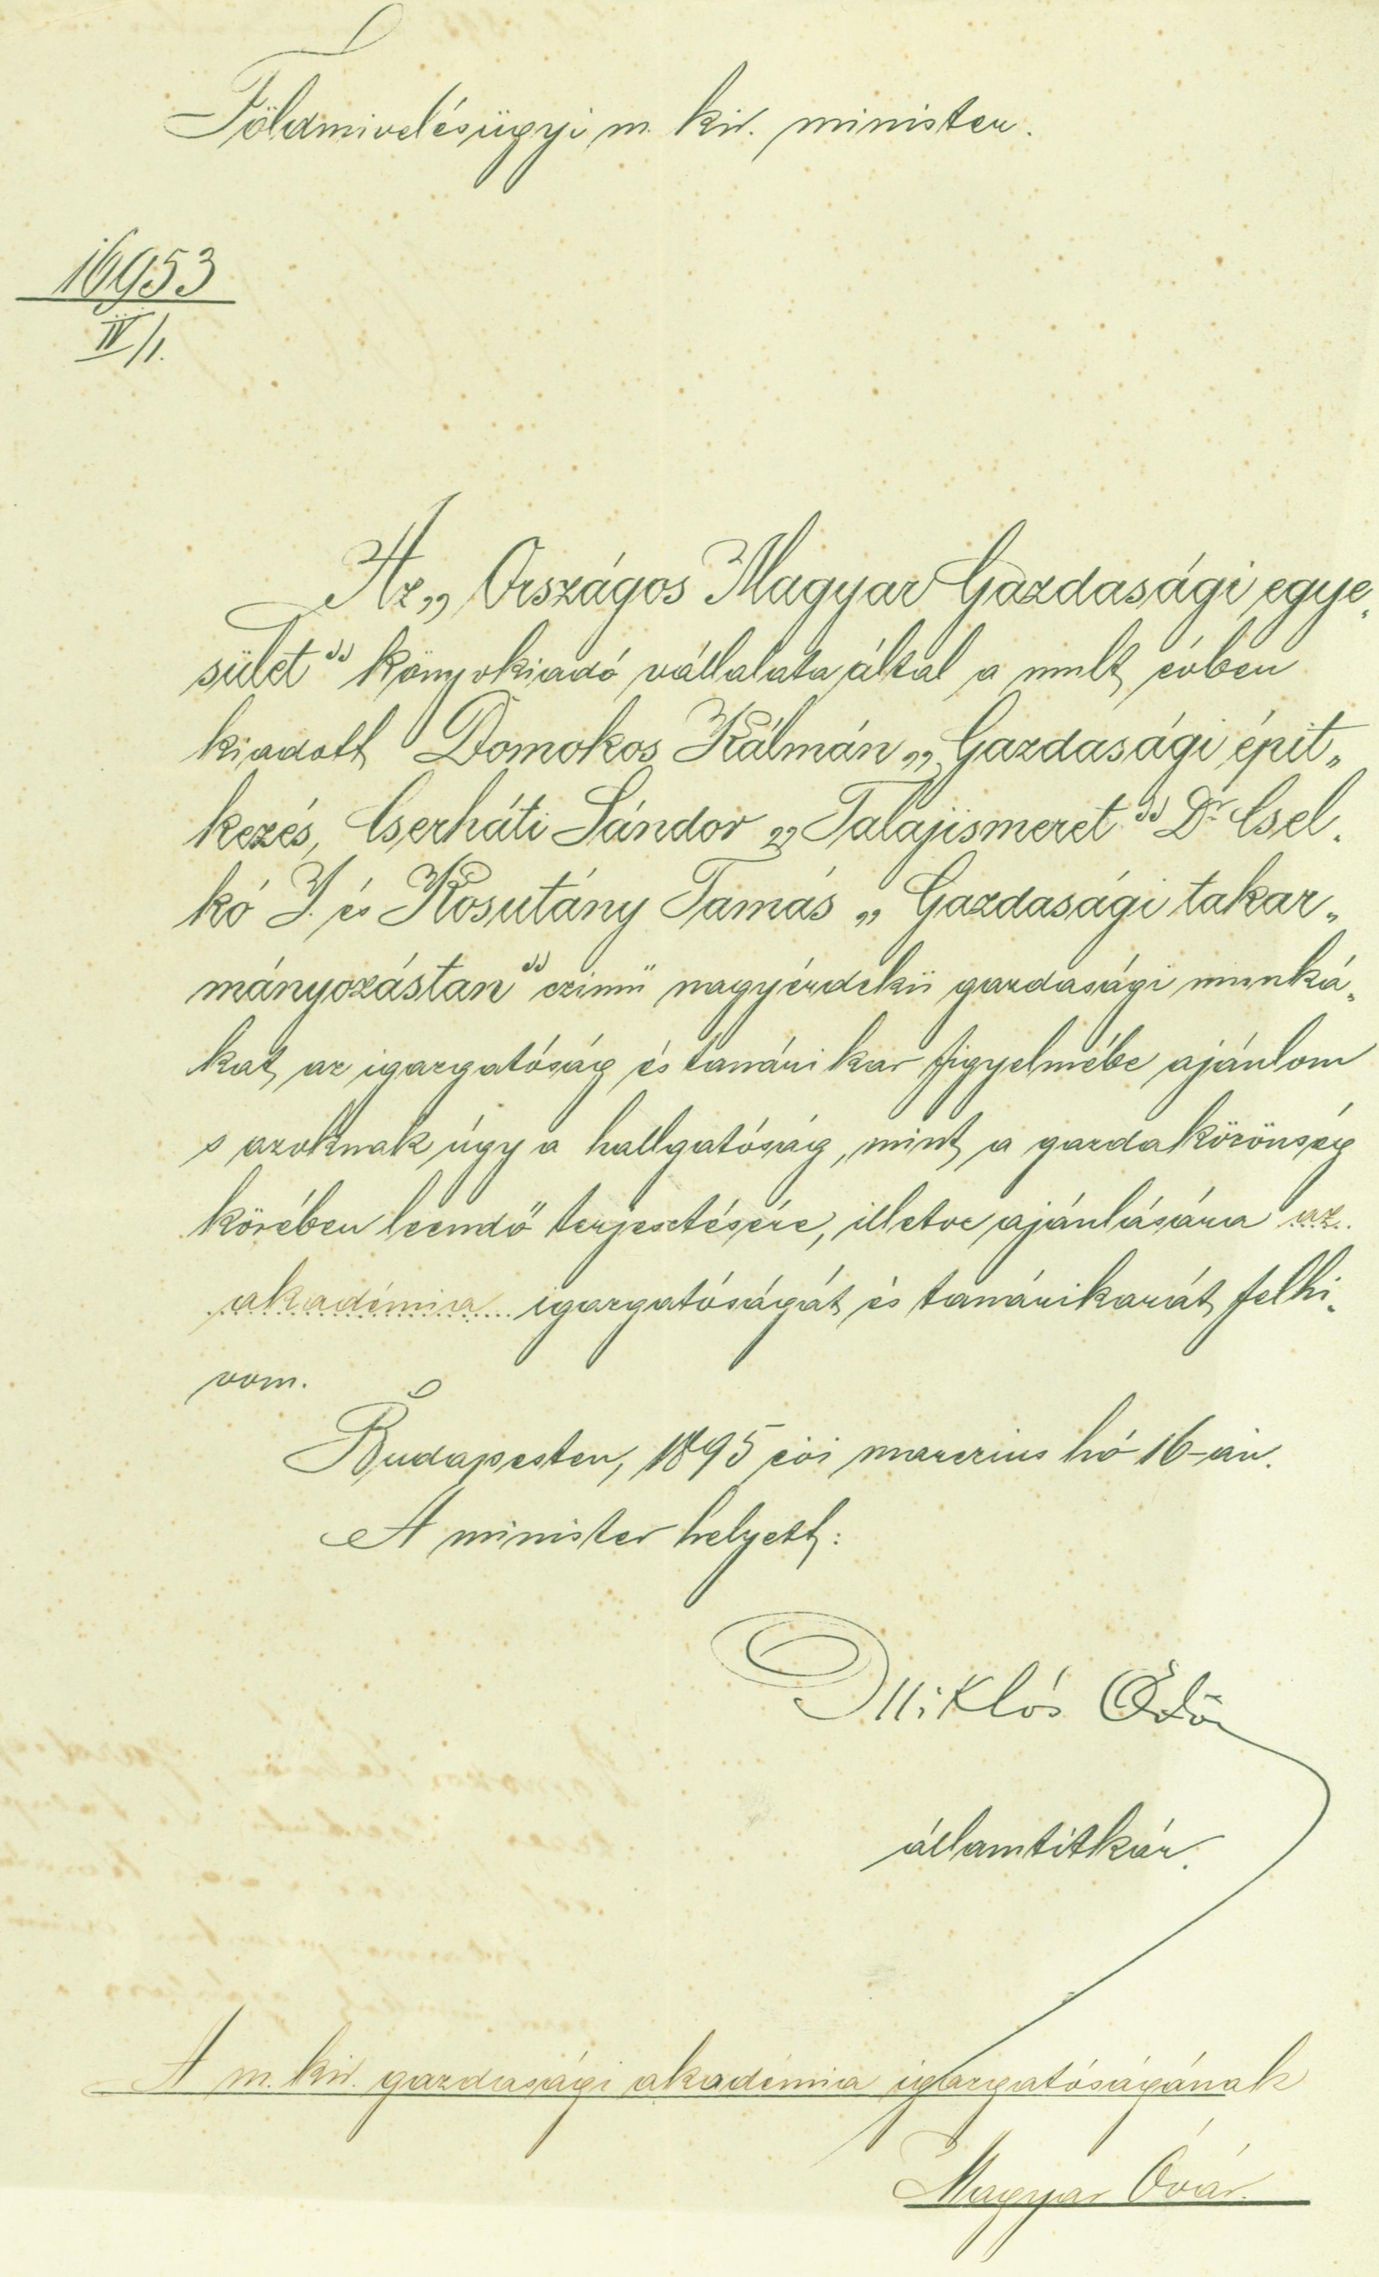 Földmivelésügyi m. kir. minister.
16953
IV/1.
Az „Országos Magyar Gazdasági egye„
sület" könyvkiadó vállalata által a mult évben
kiadott Domokos Kálmán „Gazdasági épit„
kezés, Cserháti Sándor „Talajismeret" Dr Csel„
kó I. és Kosutány Tamás „Gazdasági takar„
mányozástan" czimü nagyérdekü gazdasági munká„
kat az igazgatóság és tanári kar figyelmébe ajánlom
s azoknak úgy a hallgatóság, mint a gazdaközönség
körében leendő terjesztésére, illetve ajánlására az
akadémia igazgatóságát és tanárikarát felhi„
vom.
Budapesten, 1895 évi marczius hó 16-án.
A minister helyett:
Miklós Ödön
államtitkár.
A m. kir. gazdasági akadémia igazgatóságának
Magyar Óvár.